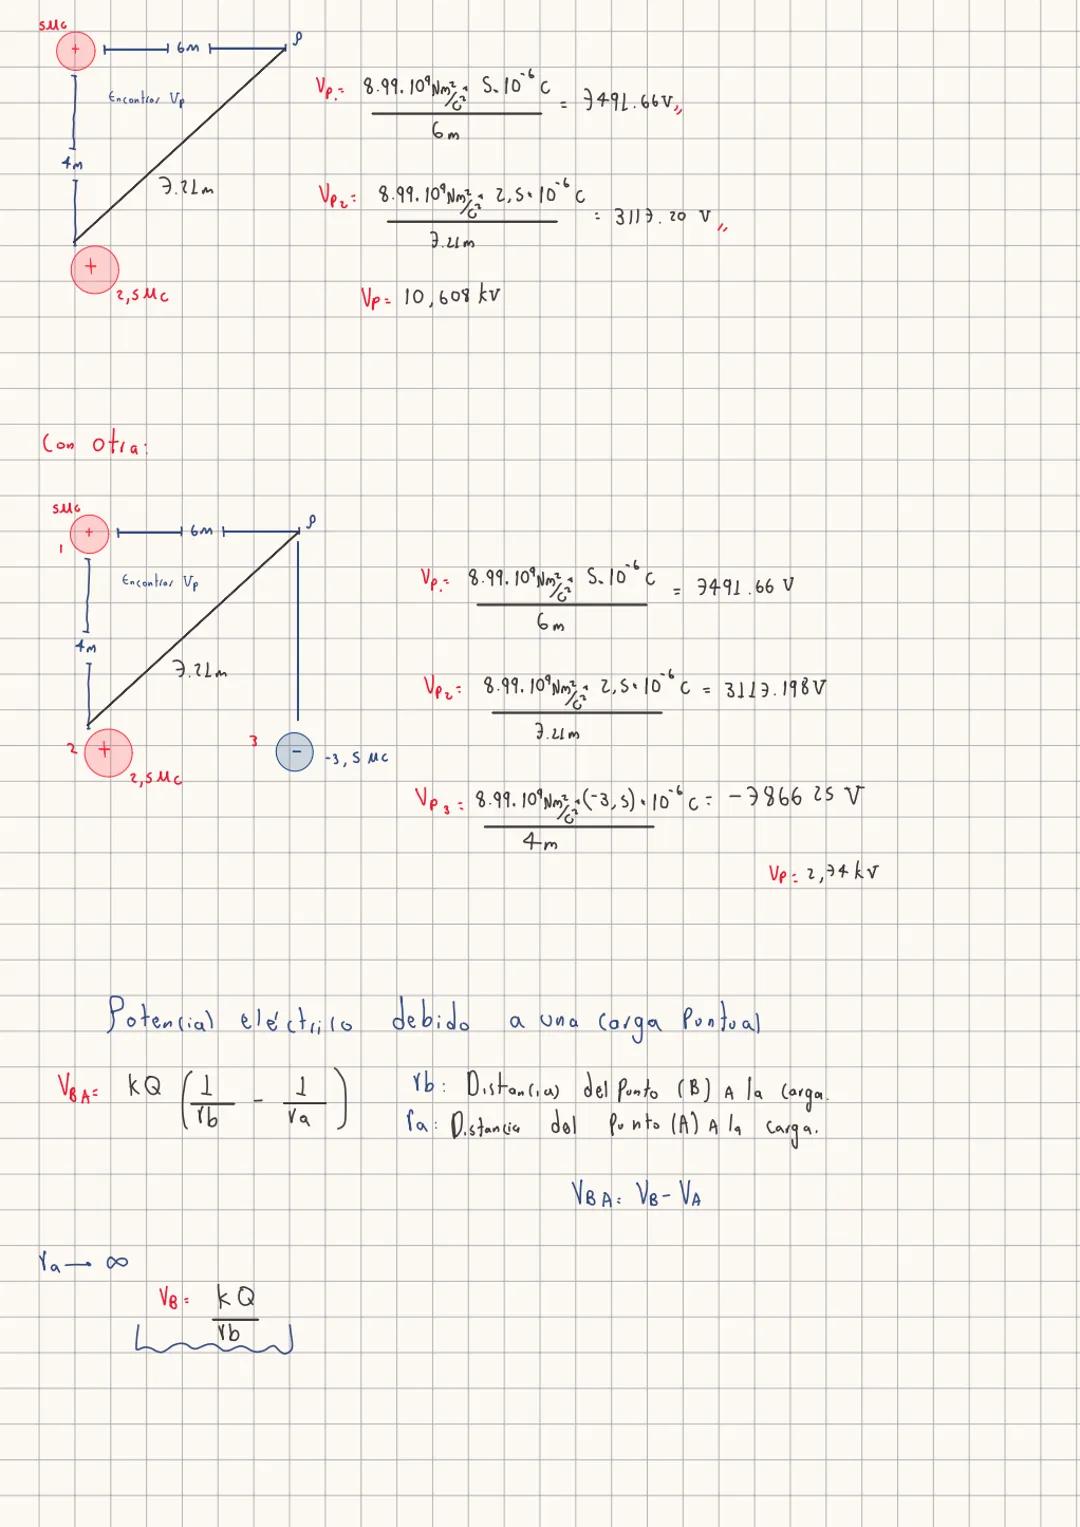 5 μc
+
6m
P
Encontrar Vp
4m
7.21m
+
2,5 μc
Vp₁ = 8.99.10⁹ Nm²/C² * 5.10⁻⁶ C / 6m = 7491.66V,,
Vp₂ = 8.99.10⁹ Nm²/C² * 2,5.10⁻⁶ C / 7.21m = 3117.20 V,,
Vp = 10,608 kV
Con otra:
5 μc
+
1
6m
P
Encontrar Vp
4m
7.21m
2
+
2,5 μc
3
-
-3,5 μc
Vp₁ = 8.99.10⁹ Nm²/C² * 5.10⁻⁶ C / 6m = 7491.66 V
Vp₂ = 8.99.10⁹ Nm²/C² * 2,5.10⁻⁶ C / 7.21m = 3117.198V
Vp₃ = 8.99.10⁹ Nm²/C² * (-3,5).10⁻⁶ C / 4m = -7866 25 V
Vp = 2,74 kV
Potencial eléctrico debido a una carga Puntual
VBA = kQ (1/rb - 1/ra)
rb: Distancia del Punto (B) A la carga.
ra: Distancia del Punto (A) A la carga.
VBA = VB - VA
ra → ∞
VB = kQ/rb